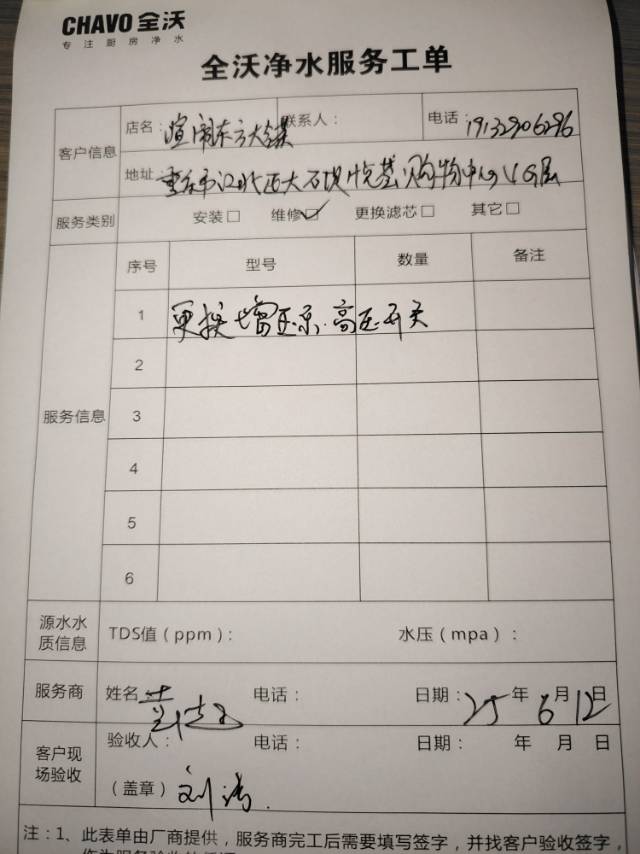 CHAVO 全沃
专注厨房净水
全沃净水服务工单
客户信息
店名： 喧闹东方大 联系人： 电话： 19132906296
地址 重庆市江北区大石坝 购物中心 LG层
服务类别 安装□ 维修☑ 更换滤芯□ 其它□
服务信息
序号 型号 数量 备注
1 更换增压泵.高压开关
2
3
4
5
6
源水水质信息 TDS值（ppm）： 水压（mpa）：
服务商 姓名 电话： 日期： 25 年 6 月 12 日
客户现场验收 验收人： 电话： 日期： 年 月 日
（盖章） 刘涛
注：1、此表单由厂商提供，服务商完工后需要填写签字，并找客户验收签字，